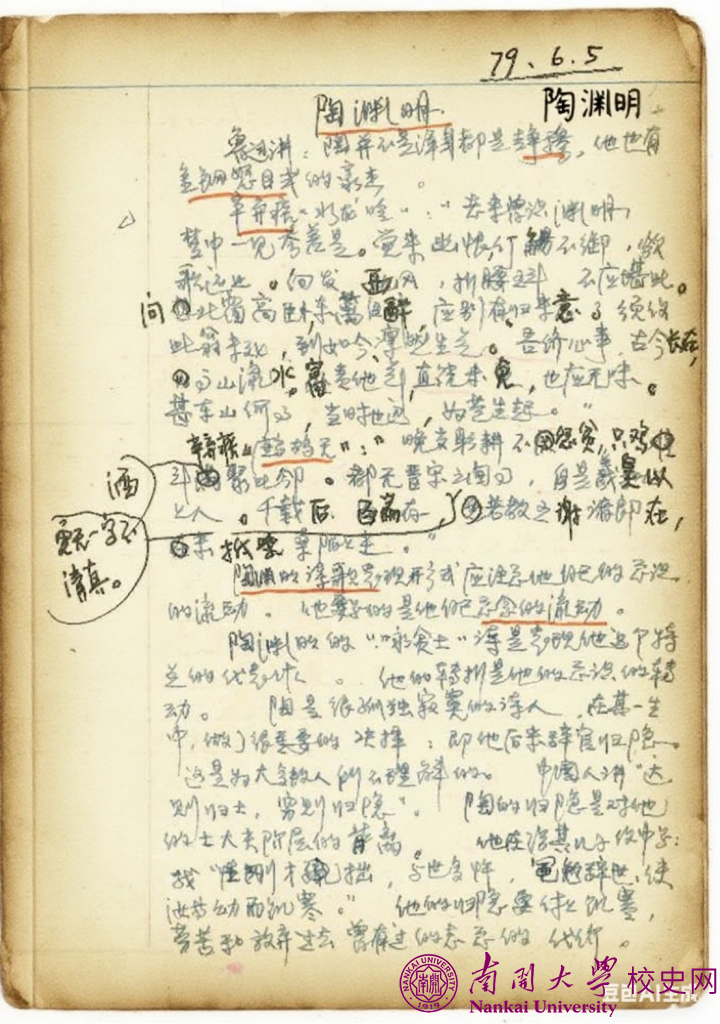 79.6.5
陶渊明
陶渊明.
鲁迅讲:陶并不是浑身都是静穆,他也有
金刚怒目式的 。
辛弃疾"水龙吟":"老来曾识渊明,
梦中一见参差是。觉来幽恨,停觞不御,欲
歌还止。 西风,折腰五斗 不应堪此。
问 此翁未死,到如今,凛然生气。吾侪心事,古今长在,
高山流水。富贵他年,直饶未免,也应无味。
甚东山何事,当时也道,为苍生起。"
辛弃疾"鹧鸪天":"晚岁躬耕不怨贫,只鸡
斗酒聚比邻。都无晋宋之间事,自是羲皇以
上人。千载后,百篇存,
更无一字不
清真。
若教王谢诸郎在,
未抵柴桑陌上尘。"
陶渊明的诗歌 形式应注意他自己的意识
的流动。他 的是他自己意念的流动。
陶渊明的"咏贫士"诗是表现他这个特
点的代表作。他的转折是他的意识的转
动。 陶是很孤独寂寞的诗人,在其一生
中,做了很重要的决择:即他后来辞官归隐。
这是为大多数人所不理解的。 中国人讲"达
则归士,穷则归隐"。 陶的归隐是对他
的士大夫阶层的背离。 他在给其儿子 中 :
我"性刚才拙,与世多忤,黾勉辞世,使
汝等幼而饥寒。" 他的归隐要付上饥寒,
劳苦和放弃过去曾有过的志意的代价。
NANKAI UNIVERSITY
1919
南开大学校史网
Nankai University
豆包AI生成